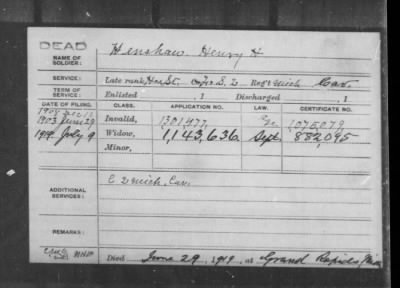 DEAD
NAME OF SOLDIER: Henshaw Henry H
SERVICE: Late rank, Hos. St. Co. S. 2 Reg't Mich Cav.
TERM OF SERVICE: Enlisted , 1 Discharged , 1
DATE OF FILING. CLASS. APPLICATION NO. LAW. CERTIFICATE NO.
1903 June 29 Invalid, 1301477 1075079
1919 July 9 Widow, 1,143,636 Sept. 882,095
Minor,
ADDITIONAL SERVICES: C 2 Mich. Cav.
REMARKS:
Died June 29, 1919, at Grand Rapids, Mich